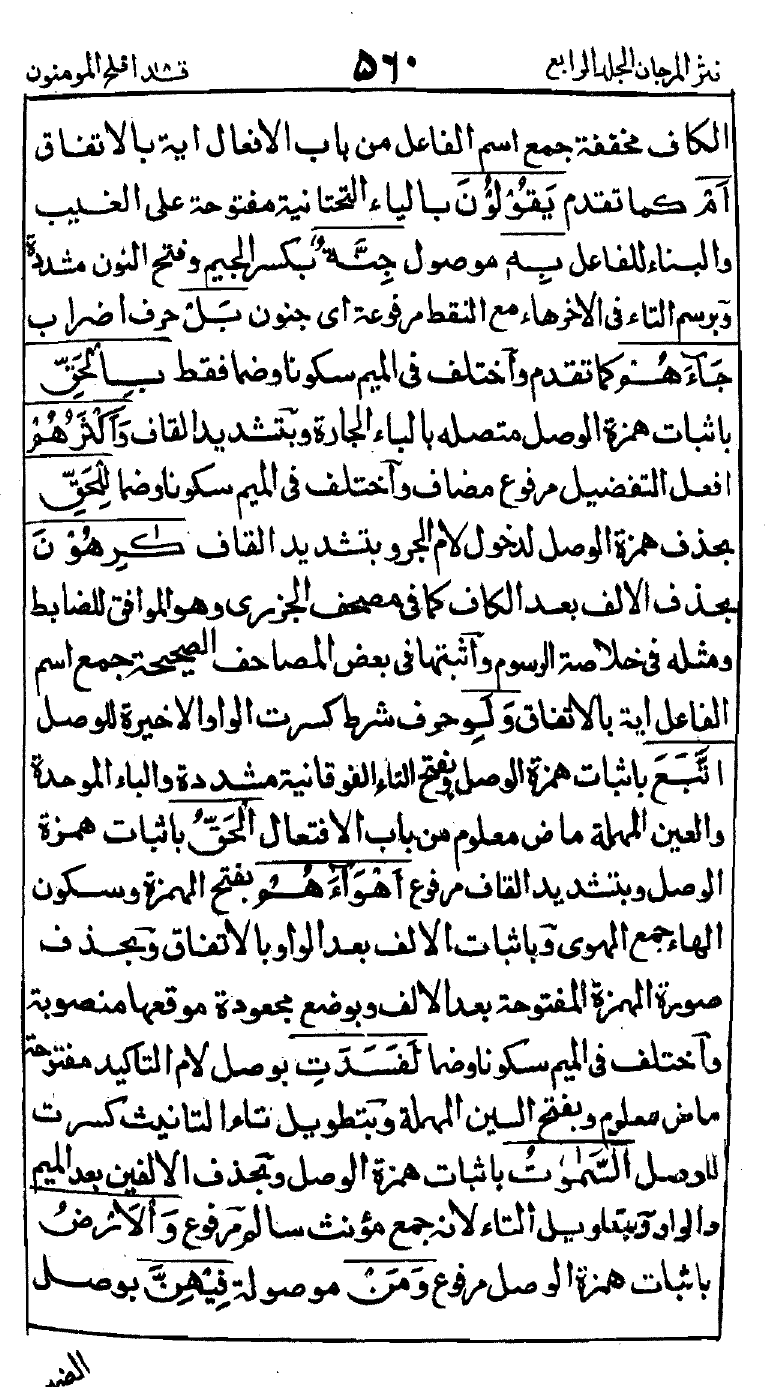 نثر المرجان الجلد الرابع ۵۶۰ قد افلح المومنون
الكاف مخففة جمع اسم الفاعل من باب الافعال اية بالاتفاق
اَمْ كما تقدم يَقُوْلُوْنَ بالياء التحتانية مفتوحة على الغيب
والبناء للفاعل بِهٖ موصول جِنَّةٌ بكسر الجيم وفتح النون مشددة
وبرسم التاء فى الاخر هاء مع النقط مرفوعة اى جنون بَلْ حرف اضراب
جَآءَهُمْ كما تقدم واختلف فى الميم سكونا وضما فقط بِالْحَقِّ
باثبات همزة الوصل متصله بالباء الجارة وبتشديد القاف وَاَكْثَرُهُمْ
افعل التفضيل مرفوع مضاف واختلف فى الميم سكونا وضما لِلْحَقِّ
بحذف همزة الوصل لدخول لام الجر وبتشديد القاف كٰرِهُوْنَ
بحذف الالف بعد الكاف كما فى مصحف الجزرى وهو الموافق للضابط
ومثله فى خلاصة الرسوم واثبتها فى بعض المصاحف الصحيحة جمع اسم
الفاعل اية بالاتفاق وَلَوِ حرف شرط كسرت الواو الاخيرة للوصل
اتَّبَعَ باثبات همزة الوصل وبفتح التاء الفوقانية مشددة والباء الموحدة
والعين المهملة ماض معلوم من باب الافتعال الْحَقُّ باثبات همزة
الوصل وبتشديد القاف مرفوع اَهْوَآءَهُمْ بفتح الهمزة وسكون
الهاء جمع الهوى وباثبات الالف بعد الواو بالاتفاق وبحذف
صورة الهمزة المفتوحة بعد الالف وبوضع مجعودة موقعها منصوبة
واختلف فى الميم سكونا وضما لَفَسَدَتِ بوصل لام التاكيد مفتوحة
ماض معلوم وبفتح السين المهملة وبتطويل تاء التانيث كسرت
للوصل السَّمٰوٰتُ باثبات همزة الوصل وبحذف الالفين بعد الميم
والواو وبتطويل التاء لانه جمع مؤنث سالم مرفوع وَالْاَرْضُ
باثبات همزة الوصل مرفوع وَمَنْ موصولة فِيْهِنَّ بوصل
الضمير